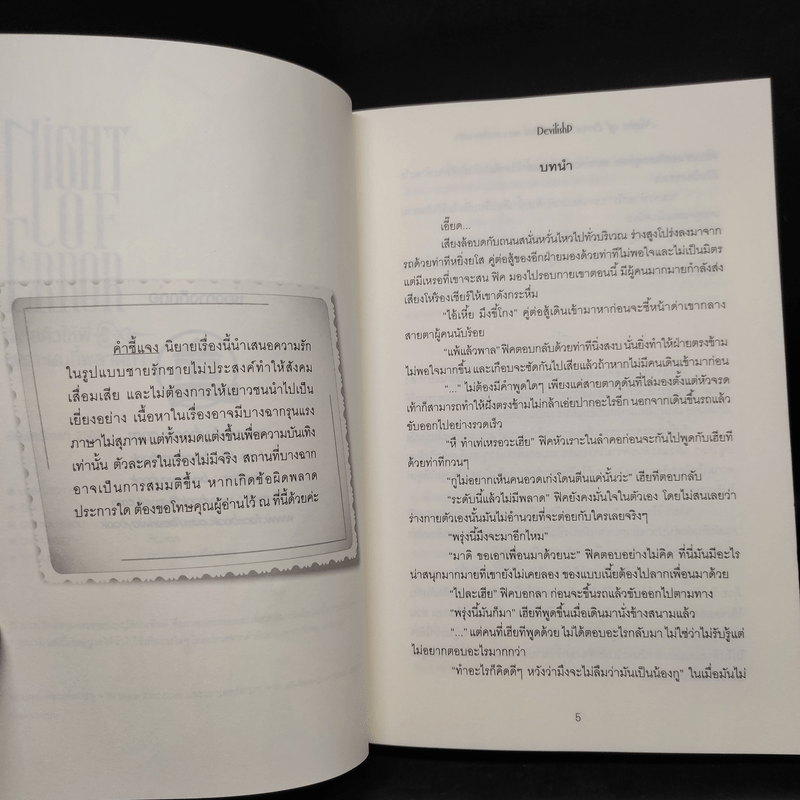 คำชี้แจง นิยายเรื่องนี้นำเสนอความรัก
ในรูปแบบชายรักชายไม่ประสงค์ทำให้สังคม
เสื่อมเสีย และไม่ต้องการให้เยาวชนนำไปเป็น
เยี่ยงอย่าง เนื้อหาในเรื่องอาจมีบางฉากรุนแรง
ภาษาไม่สุภาพ แต่ทั้งหมดแต่งขึ้นเพื่อความบันเทิง
เท่านั้น ตัวละครในเรื่องไม่มีจริง สถานที่บางฉาก
อาจเป็นการสมมติขึ้น หากเกิดข้อผิดพลาด
ประการใด ต้องขอโทษคุณผู้อ่านไว้ ณ ที่นี้ด้วยค่ะ
DevilishP
บทนำ
เอี๊ยด...
เสียงล้อบดกับถนนสนั่นหวั่นไหวไปทั่วบริเวณ ร่างสูงโปร่งลงมาจาก
รถด้วยท่าทีหยิ่งยโส คู่ต่อสู้ของอีกฝ่ายมองด้วยท่าทีไม่พอใจและไม่เป็นมิตร
แต่มีเหรอที่เขาจะสน ฟิค มองไปรอบกายเขาตอนนี้ มีผู้คนมากมายกำลังส่ง
เสียงโห่ร้องเชียร์ให้เขาดังกระหึ่ม
"ไอ้เหี้ย มึงขี้โกง" คู่ต่อสู้เดินเข้ามาหาก่อนจะชี้หน้าด่าเขากลาง
สายตาผู้คนนับร้อย
"แพ้แล้วพาล" ฟิคตอบกลับด้วยท่าทีนิ่งสงบ นั่นยิ่งทำให้ฝ่ายตรงข้าม
ไม่พอใจมากขึ้น และเกือบจะซัดกันไปเสียแล้วถ้าหากไม่มีคนเดินเข้ามาก่อน
"..." ไม่ต้องมีคำพูดใดๆ เพียงแค่สายตาดุดันที่ไล่มองตั้งแต่หัวจรด
เท้าก็สามารถทำให้ฝั่งตรงข้ามไม่กล้าเอ่ยปากอะไรอีก นอกจากเดินขึ้นรถแล้ว
ขับออกไปอย่างรวดเร็ว
"หึ ทำเท่เหรอวะเฮีย" ฟิคหัวเราะในลำคอก่อนจะกันไปพูดกับเฮียที
ด้วยท่าทีกวนๆ
"กูไม่อยากเห็นคนอวดเก่งโดนตีนแค่นั้นว่ะ" เฮียทีตอบกลับ
"ระดับนี้แล้วไม่มีพลาด" ฟิคยังคงมั่นใจในตัวเอง โดยไม่สนเลยว่า
ร่างกายตัวเองนั้นมันไม่อำนวยที่จะต่อยกับใครเลยจริงๆ
"พรุ่งนี้มึงจะมาอีกไหม"
"มาดิ ขอเอาเพื่อนมาด้วยนะ" ฟิคตอบอย่างไม่คิด ที่นี่มันมีอะไร
น่าสนุกมากมายที่เขายังไม่เคยลอง ของแบบเนี้ยต้องไปลากเพื่อนมาด้วย
"ไปละเฮีย" ฟิคบอกลา ก่อนจะขึ้นรถแล้วขับออกไปตามทาง
"พรุ่งนี้มันก็มา" เฮียทีพูดขึ้นเมื่อเดินมานั่งข้างสนามแล้ว
"..." แต่คนที่เฮียทีพูดด้วย ไม่ได้ตอบอะไรกลับมา ไม่ใช่ว่าไม่รับรู้แต่
ไม่อยากตอบอะไรมากกว่า
"ทำอะไรก็คิดดีๆ หวังว่ามึงจะไม่ลืมว่ามันเป็นน้องกู" ในเมื่อมันไม่
5